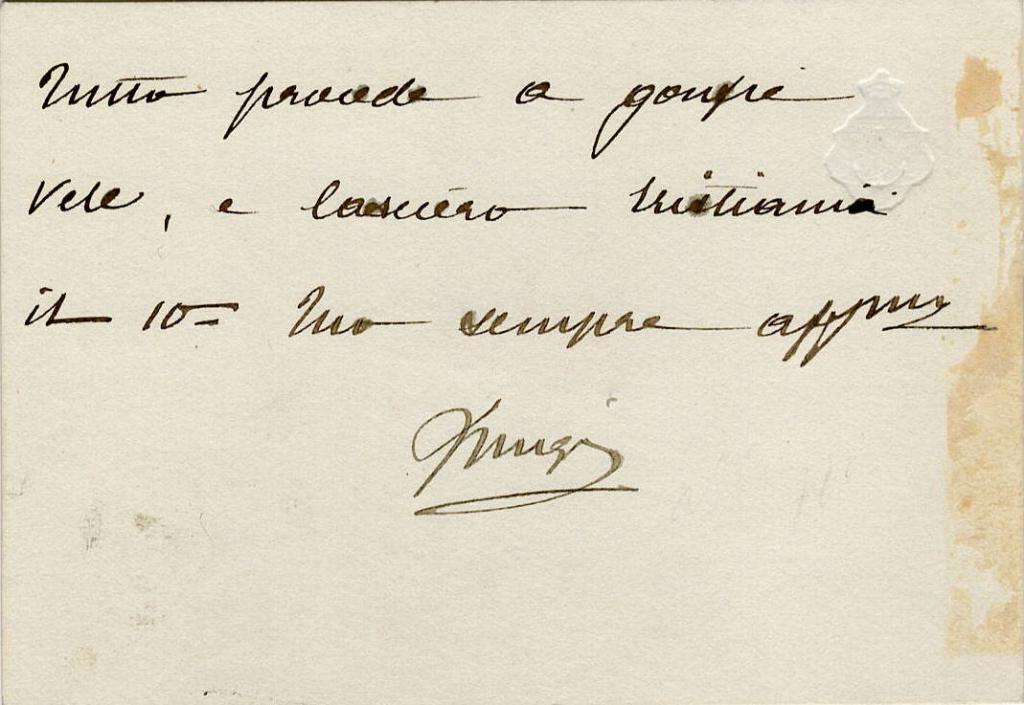 Tutto procede a gonfie
vele, e lascierò Kristiania
il 10= Tuo sempre affmo
Luigi